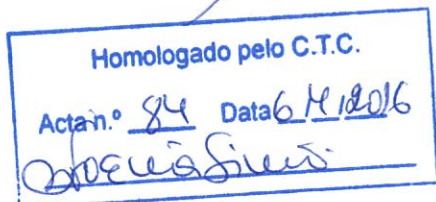 Homologado pelo C.T.C.
Acta n.º 84 Data 6 / / 2016